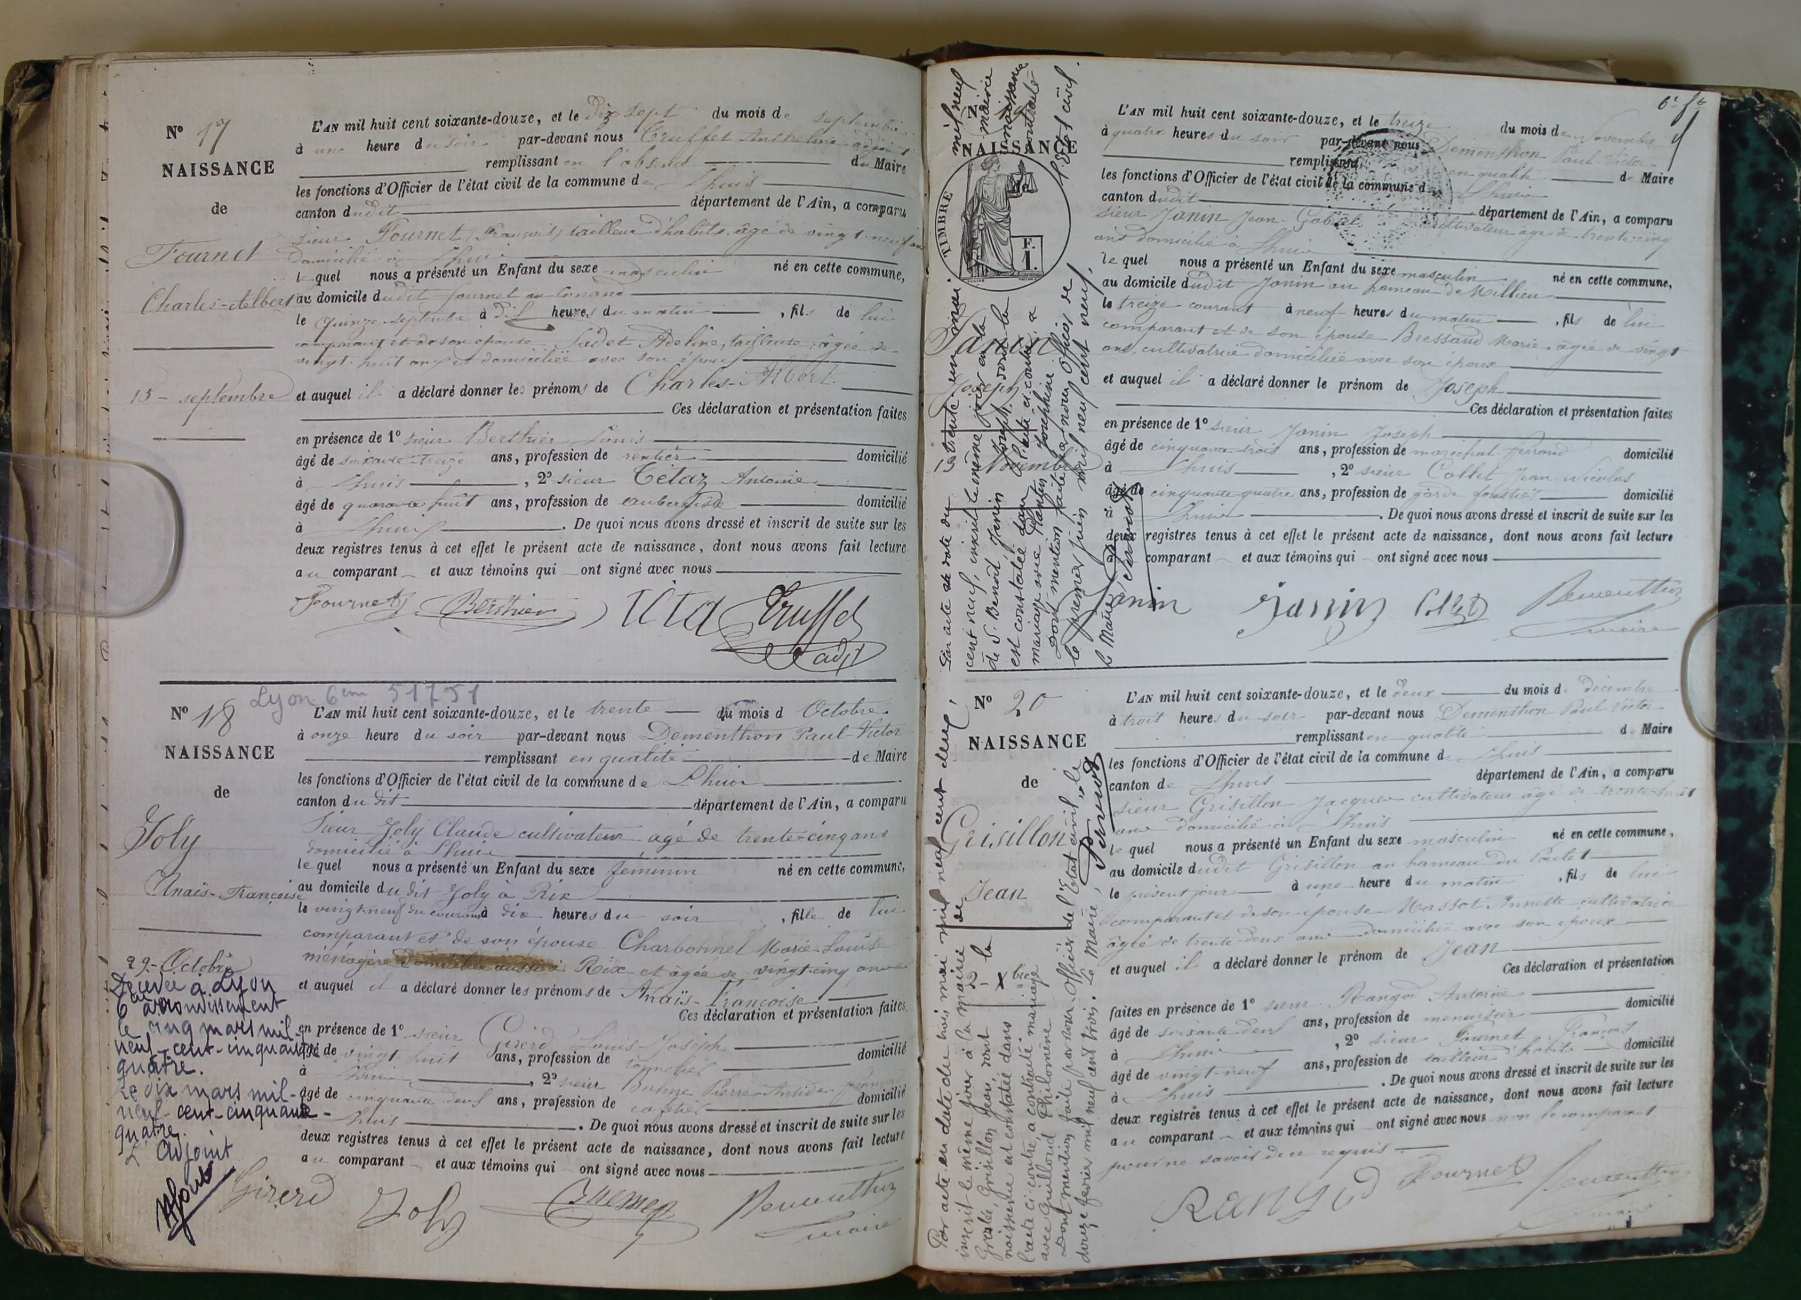 N° 17
NAISSANCE
de
Fournet
Charles-Albert
15 - septembre
L'AN mil huit cent soixante-douze, et le dix sept du mois de septembre
à une heure du soir par-devant nous Truffet
remplissant en l'absence du Maire
les fonctions d'Officier de l'état civil de la commune de Lhuis
canton dudit département de l'Ain, a comparu
sieur Fournet François tailleur d'habits, âgé de vingt-neuf ans
domicilié à Lhuis
le quel nous a présenté un Enfant du sexe masculin né en cette commune,
au domicile dudit Fournet
le quinze septembre à dix heures du matin , fils de lui
comparant et de son épouse Cadet Adeline, tailleuse, âgée de
vingt huit ans et domiciliée avec son époux
et auquel il a déclaré donner les prénoms de Charles-Albert
Ces déclaration et présentation faites
en présence de 1° sieur Berthier Louis
âgé de soixante-treize ans, profession de rentier domicilié
à Lhuis , 2° sieur Tétaz Antoine
âgé de quarante huit ans, profession de aubergiste domicilié
à Lhuis . De quoi nous avons dressé et inscrit de suite sur les
deux registres tenus à cet effet le présent acte de naissance, dont nous avons fait lecture
au comparant et aux témoins qui ont signé avec nous
Fournet Berthier Téta Truffet
adjt
Lyon 6em 51751
N° 18
NAISSANCE
de
Joly
Anaïs-Françoise
29 - Octobre
Décédée à Lyon
6e arrondissement
le cinq mars mil
neuf-cent-cinquante
quatre.
Le dix mars mil-
neuf-cent-cinquante-
quatre.
L'adjoint
L'AN mil huit cent soixante-douze, et le trente du mois d Octobre
à onze heure du soir par-devant nous Dementhon Paul Victor
remplissant en qualité de Maire
les fonctions d'Officier de l'état civil de la commune de Lhuis
canton dudit département de l'Ain, a comparu
Sieur Joly Claude cultivateur agé de trente-cinq ans
domicilié à Lhuis
le quel nous a présenté un Enfant du sexe féminin né en cette commune,
au domicile dudit Joly à Rix
le vingt neuf du courant à dix heures du soir , fille de lui
comparant et de son épouse Charbonnel Marie-Louise
ménagère domiciliée aussi à Rix et agée de vingt-cinq ans
et auquel il a déclaré donner les prénoms de Anaïs-Françoise
Ces déclaration et présentation faites
en présence de 1° sieur Girerd Louis-Joseph
âgé de vingt huit ans, profession de domicilié
à Lhuis , 2° sieur Pierre
âgé de cinquante deux ans, profession de domicilié
à Lhuis . De quoi nous avons dressé et inscrit de suite sur les
deux registres tenus à cet effet le présent acte de naissance, dont nous avons fait lecture
au comparant et aux témoins qui ont signé avec nous
Girerd Joly Dementhon
maire
NAISSANCE
de
TIMBRE
F.
1.
Janin
Joseph
13 Novembre
Par acte de date du trente un mai mil neuf
cent neuf, inscrit le même jour à la mairie
de St Benoît Janin Joseph dont la naissance
est constatée dans l'acte ci-contre a contracté
mariage avec Plantin Joséphine
Dont mention faite par nous officier de l'état civil.
le premier juin mil neuf cent neuf,
le Maire
Pernod
L'AN mil huit cent soixante-douze, et le treize du mois de Novembre
à quatre heures du soir par-devant nous Dementhon Paul Victor
remplissant en qualité de Maire
les fonctions d'Officier de l'état civil de la commune de Lhuis
canton dudit département de l'Ain, a comparu
sieur Janin Jean Gabriel cultivateur agé de trente-cinq
ans domicilié à Lhuis
le quel nous a présenté un Enfant du sexe masculin né en cette commune,
au domicile dudit Janin au hameau de Millieu
le treize courant à neuf heures du matin , fils de lui
comparant et de son épouse Bressand Marie agée de vingt
ans, cultivatrice domiciliée avec son époux
et auquel il a déclaré donner le prénom de Joseph
Ces déclaration et présentation faites
en présence de 1° sieur Janin Joseph
âgé de cinquante trois ans, profession de maréchal ferrand domicilié
à Lhuis , 2° sieur Collet Jean Nicolas
âgé de cinquante-quatre ans, profession de garde forestier domicilié
à Lhuis . De quoi nous avons dressé et inscrit de suite sur les
deux registres tenus à cet effet le présent acte de naissance, dont nous avons fait lecture
au comparant et aux témoins qui ont signé avec nous
Janin Janin Dementhon
maire
N° 20
NAISSANCE
de
Grisillon
Jean
Par acte en date de trois mai mil neuf cent deux,
inscrit le même jour à la mairie de
Grisillon Jean, dont la
naissance est constatée dans
l'acte ci-contre, a contracté mariage
avec Guilloud Philomène
Dont mention faite par nous Officier de l'État civil, le
douze février mil neuf cent trois. Le Maire,
Pernod
L'AN mil huit cent soixante-douze, et le deux du mois de décembre
à trois heures du soir par-devant nous Dementhon Paul Victor
remplissant en qualité de Maire
les fonctions d'Officier de l'état civil de la commune de Lhuis
canton de Lhuis département de l'Ain, a comparu
sieur Grisillon Jacques cultivateur âgé de trente-huit
ans domicilié à Lhuis
le quel nous a présenté un Enfant du sexe masculin né en cette commune,
au domicile dudit Grisillon au hameau du Poulet
le présent jour à une heure du matin , fils de lui
comparant et de son épouse Massot Annette cultivatrice
âgée de trente-deux ans domiciliée avec son époux
et auquel il a déclaré donner le prénom de Jean
Ces déclaration et présentation
faites en présence de 1° sieur Rangod Antoine
âgé de soixante-deux ans, profession de menuisier domicilié
à Lhuis , 2° sieur Fournet François
âgé de vingt-neuf ans, profession de tailleur d'habits domicilié
à Lhuis . De quoi nous avons dressé et inscrit de suite sur les
deux registres tenus à cet effet le présent acte de naissance, dont nous avons fait lecture
au comparant et aux témoins qui ont signé avec nous non le comparant
pour ne savoir de ce requis
RANGOD Fournet Dementhon
maire